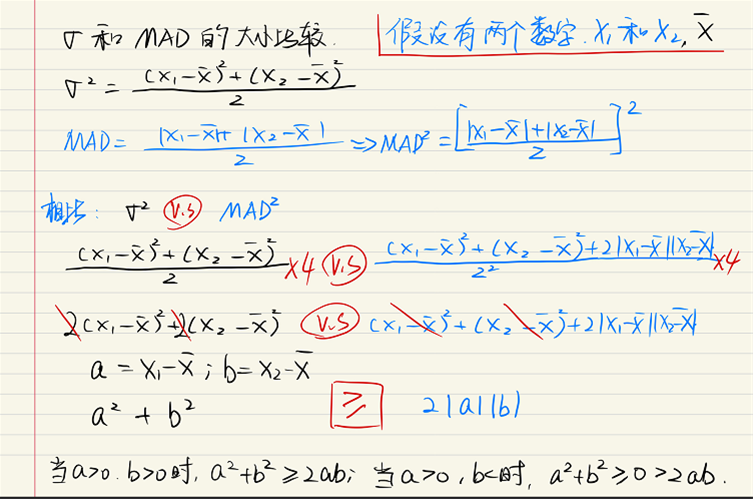 σ 和 MAD 的大小比较.
假设有两个数字. X₁ 和 X₂, X̄
σ² = ((X₁-X̄)²+(X₂-X̄)²)/2
MAD = (|X₁-X̄|+|X₂-X̄|)/2 ⇒ MAD² = [(|X₁-X̄|+|X₂-X̄|)/2]²
相比: σ² V.S MAD²
((X₁-X̄)²+(X₂-X̄)²)/2 ×4 V.S ((X₁-X̄)²+(X₂-X̄)²+2|X₁-X̄||X₂-X̄|)/2² ×4
2(X₁-X̄)²+2(X₂-X̄)² V.S (X₁-X̄)²+(X₂-X̄)²+2|X₁-X̄||X₂-X̄|
a = X₁-X̄ ; b = X₂-X̄
a² + b² ≥ 2|a||b|
当a>0. b>0时, a²+b² ≥ 2ab; 当a>0, b<时, a²+b² ≥ 0 > 2ab.